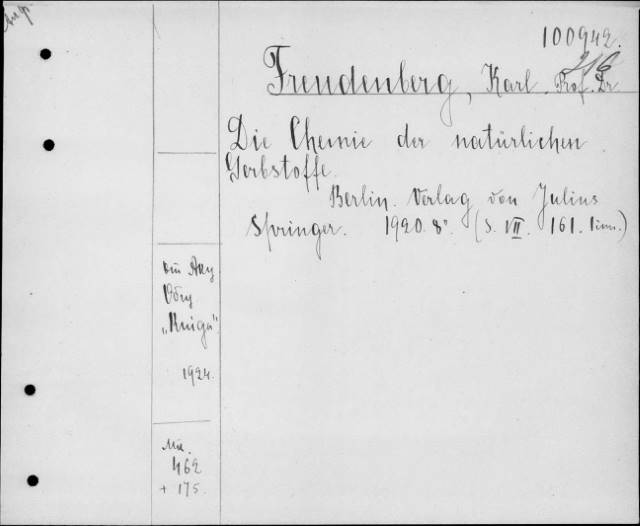 100942.
Freudenberg, Karl. Prof. Dr
Die Chemie der natürlichen
Gerbstoffe.
Berlin. Verlag von Julius
Springer. 1920. 8°. (S. VII. 161. 1inn.)
Akц
Общ
„Kniga"
1924.
462
+ 175.